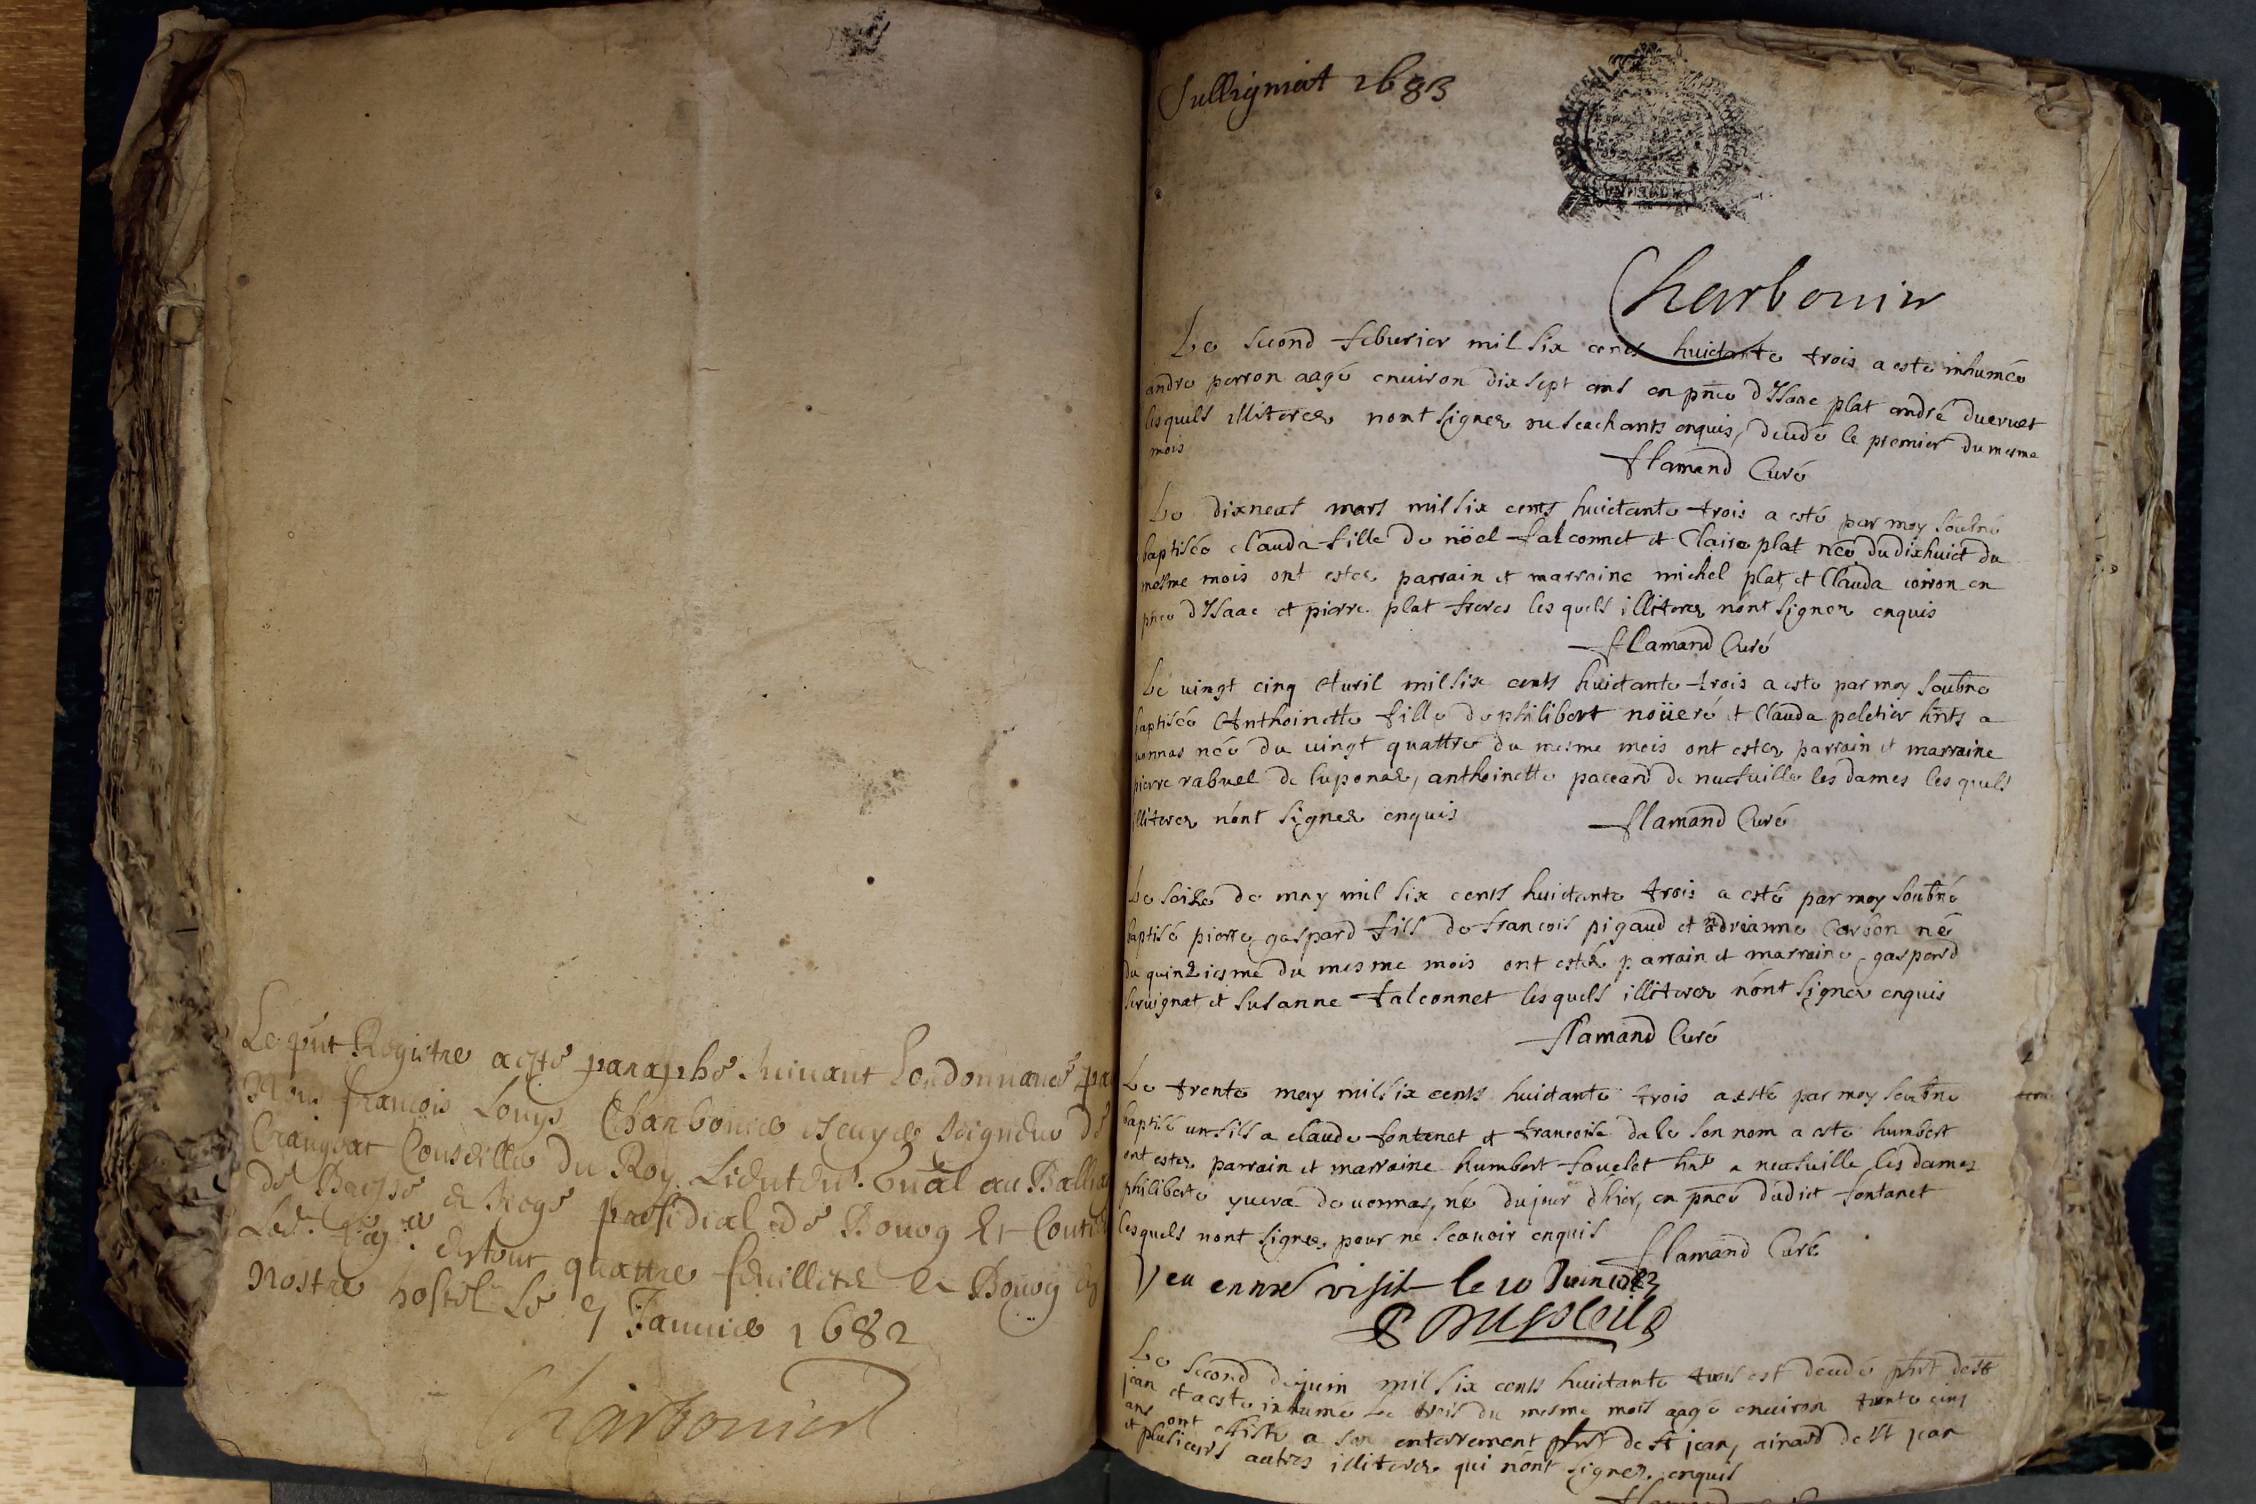 Le pnt Registre a esté paraphé suivant Lordonnance pa
Nous françois Louys Charbonier escuyer seigneur de
Crangeat Conseiller du Roy Lieutent. gnal au Ballia
de Bresse et siege presidial de Bourg Et Conti
en tout quattre feuilletz A Bourg en
Nostre hostel Le 9 Janvier 1682
Charbonier
Sulligniat 1683
Charbonier
Le second feburier mil six cents huictante trois a esté inhumée
andre perron aagé enuiron dix sept ans en pnce d'Isaac plat andré
lesquels illiterez nont signez ne scachants enquis, decedé le premier du mesme
mois
flamand Curé
Le dixneuf mars mil six cents huictante trois a esté par moy soubné
baptisée clauda fille de nöel falconnet et Claire plat née du dixhuict du
mesme mois ont estez parrain et marraine michel plat et Clauda en
pnce d'Isaac et pierre plat freres lesquels illiterez nont signez enquis
flamand Curé
Le vingt cinq Auril mil six cents huictante trois a esté par moy soubné
baptisée Anthoinette fille de philibert noüeré et Clauda peletier hnts a
vonnas née du vingt quattre du mesme mois ont estez parrain et marraine
pierre rabuel de luponas, anthoinette paccard de neufuille les dames lesquels
illiterez nont signez enquis
flamand Curé
Le seizé de may mil six cents huictante trois a esté par moy soubné
baptisé pierre gaspard fils de francois pigaud et adrianne Carbon né
du quinziesme du mesme mois ont estez parrain et marraine gaspard
seruignat et susanne falconnet lesquels illiterez nont signez enquis
flamand Curé
Le trente may mil six cents huictante trois a esté par moy soubné
baptisé un fils a claude fontenet et francoise son nom a esté humbert
ont estez parrain et marraine humbert fauelet hnt a neufuille les dames
philiberte de vonnas, né du jour d'hier, en pnce dudict fontanet
lesquels nont signez pour ne scauoir enquis
flamand Curé
Veu en nre visit le 10 Juin 1683
Le second de juin mil six cents huictante trois est decedé phrt de st
jean et a esté inhumé le trois du mesme mois aagé enuiron trente cinq
ans ont assisté a son enterrement phrt de st jean, ainard de st jean
et plusieurs autres illiterez qui nont signez enquis
flamand